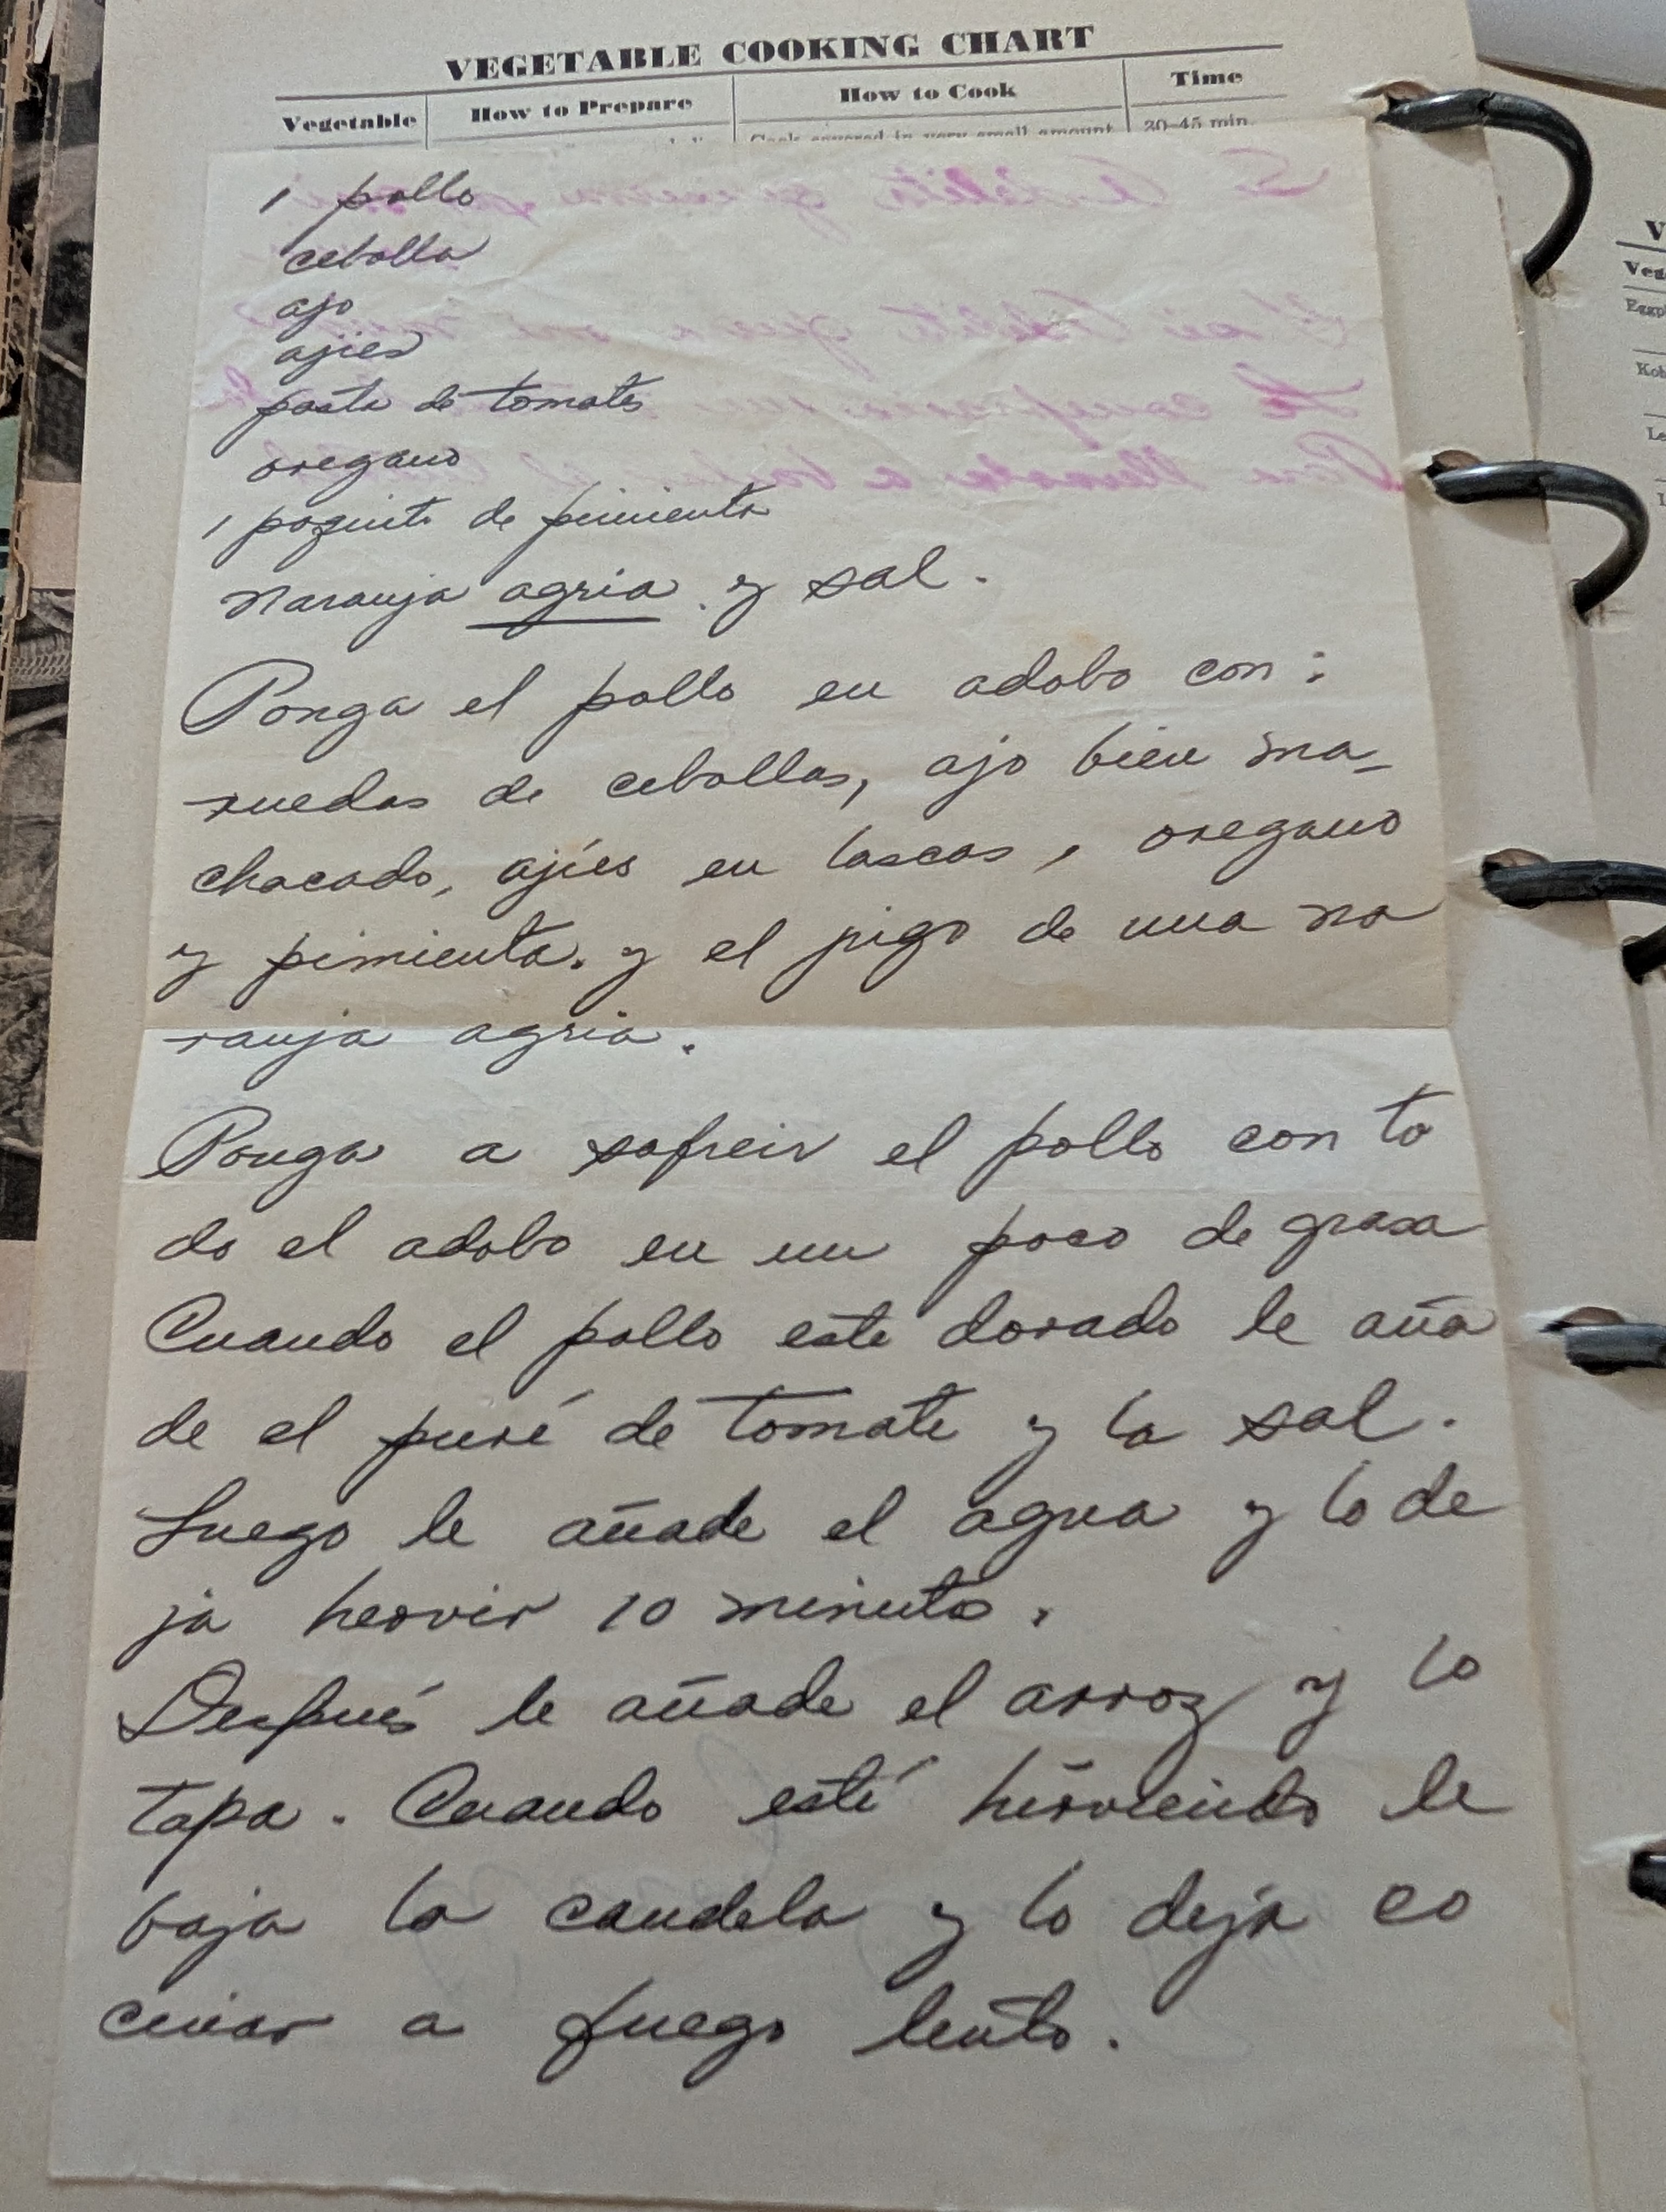 VEGETABLE COOKING CHART
Vegetable How to Prepare How to Cook Time
Cook covered in very small amount 20-45 min.
1 pollo
cebolla
ajo
ajies
pasta de tomates
oregano
1 poquito de pimienta
naranja agria . y sal.
Ponga el pollo en adobo con:
ruedas de cebollas, ajo bien ma-
chacado, ajíes en lascas, oregano
y pimienta. y el jugo de una na
ranja agria.
Ponga a sofreir el pollo con to
do el adobo en un poco de grasa
Cuando el pollo este dorado le aña
de el puré de tomate y la sal.
Luego le añade el agua y lo de
ja hervir 10 minutos.
Después le añade el arroz y lo
tapa. Cuando esté hirviendo le
baja la candela y lo deja co
cinar a fuego lento.
V
Veg
Eggpl
Koh
Le
L